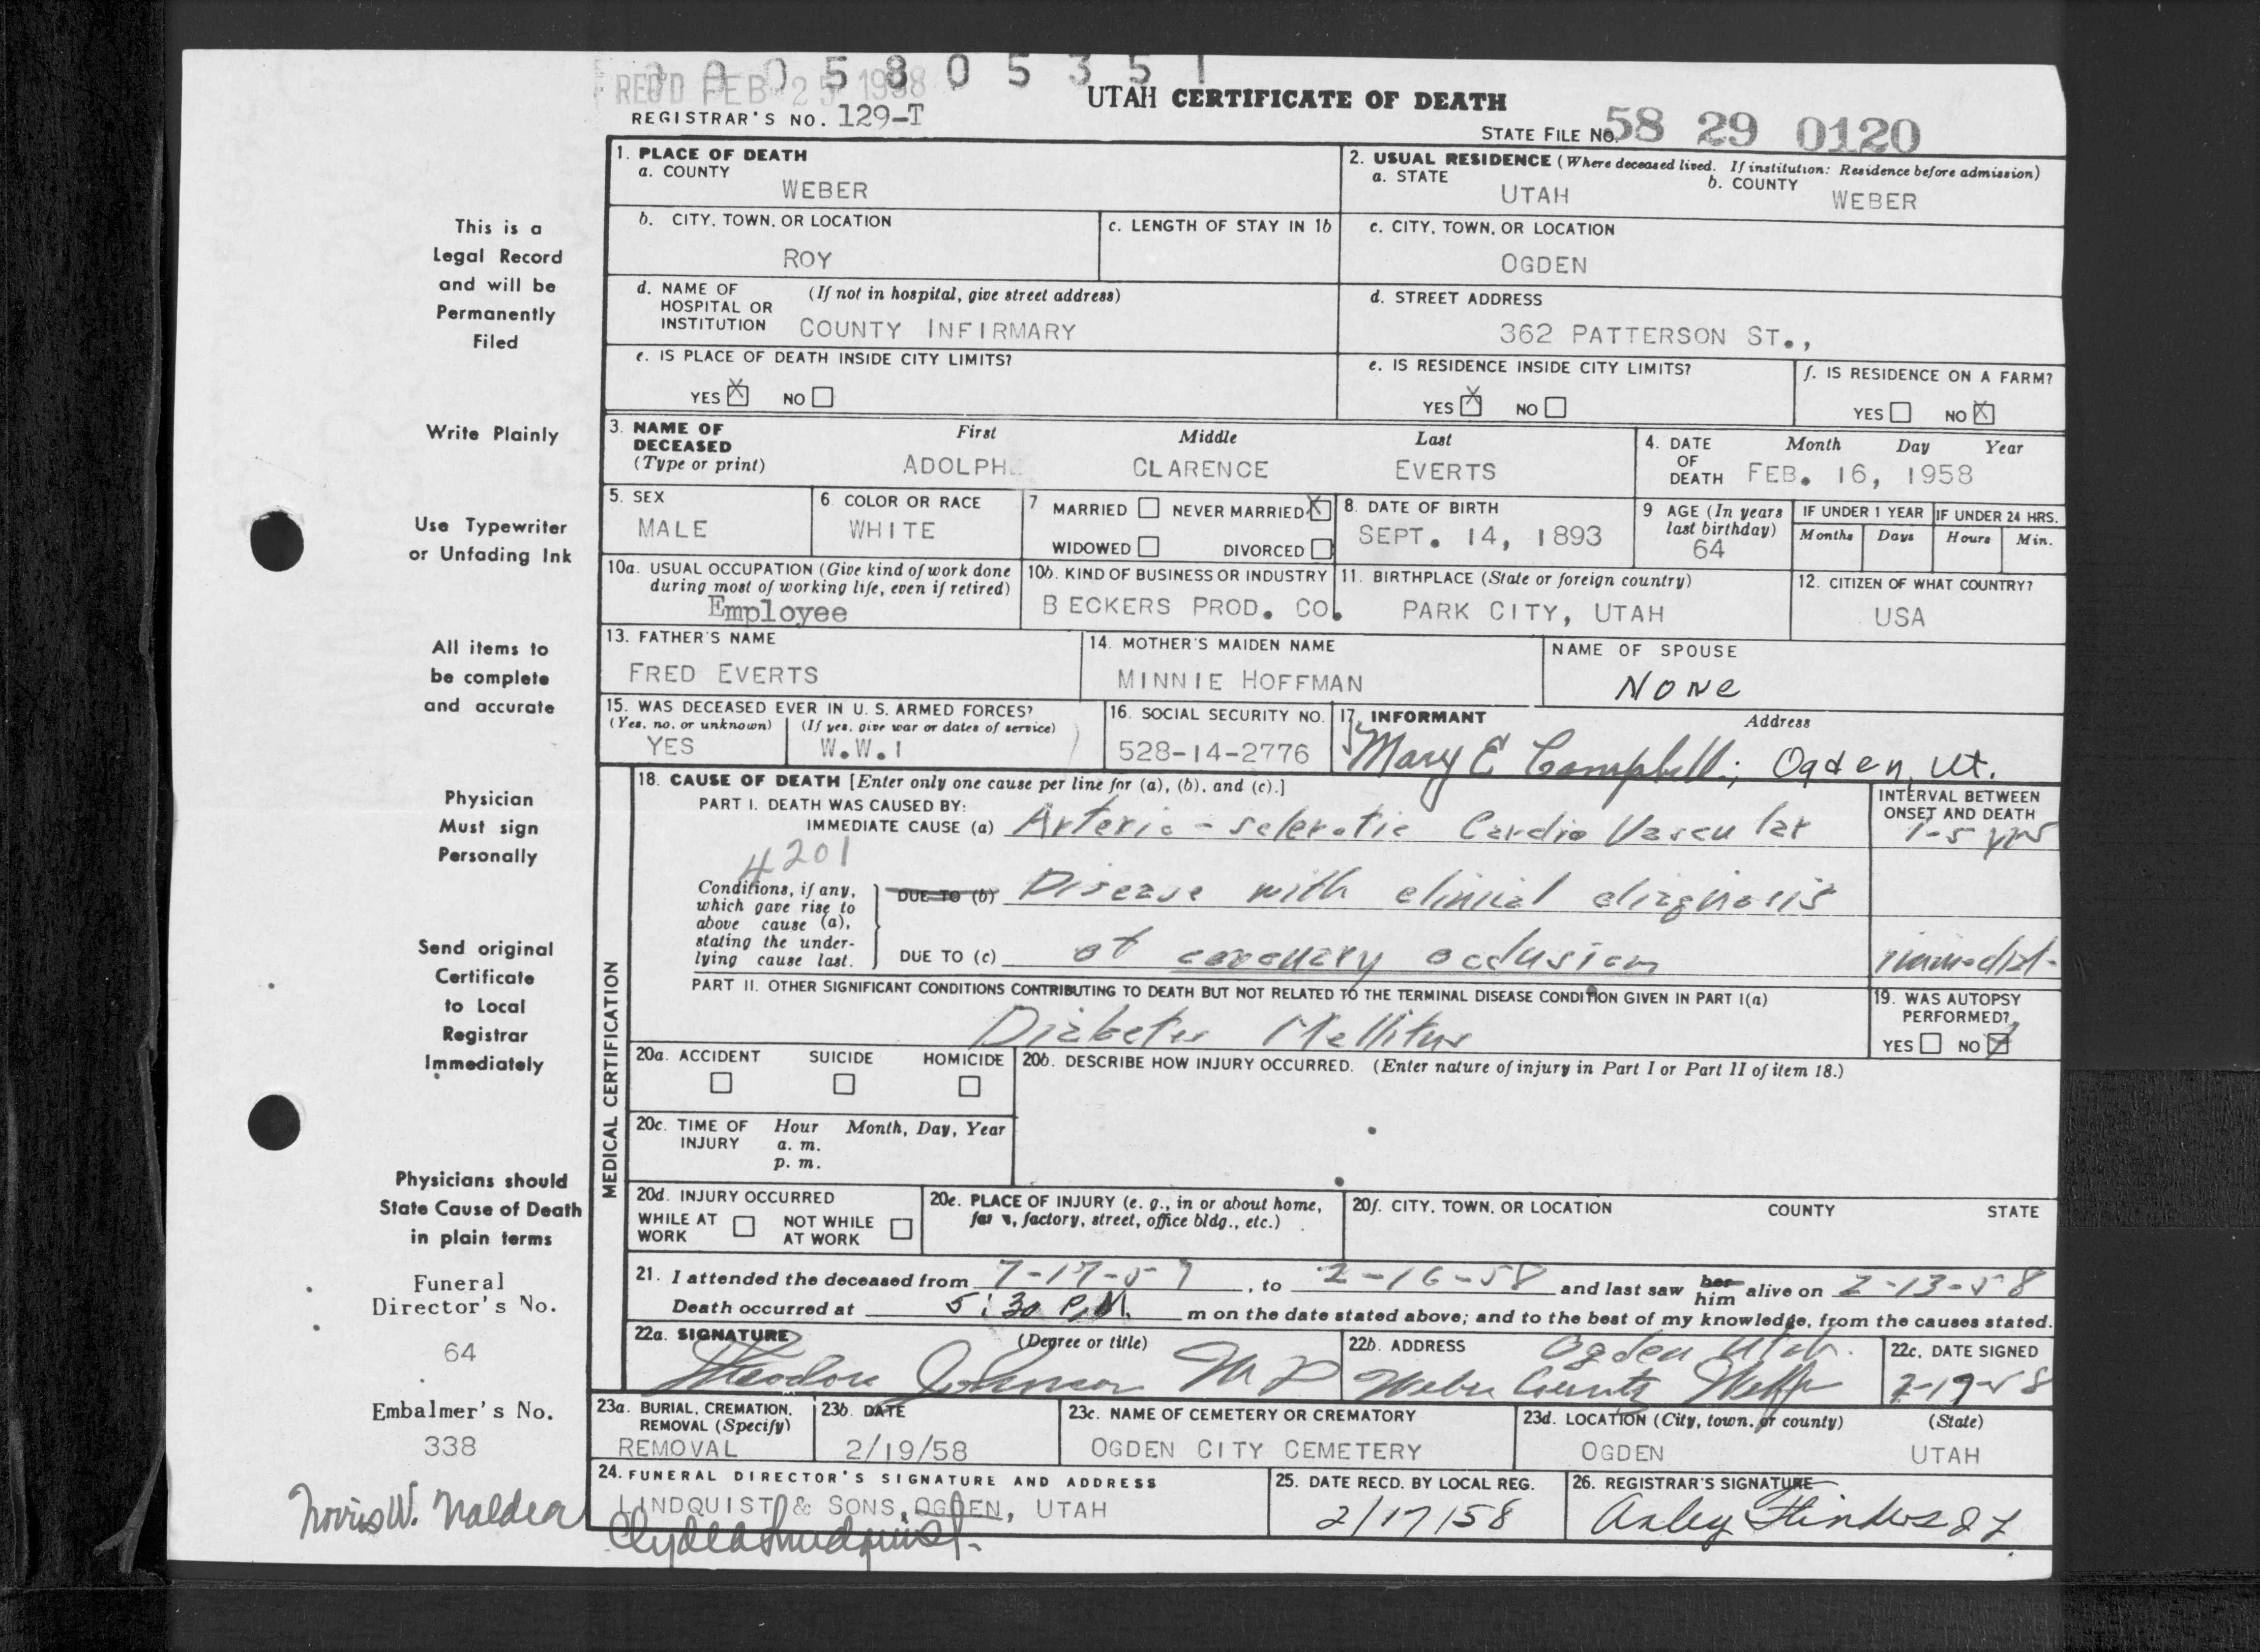 0 0 0 5 8 0 5 3 5 1
REC'D FEB 25 1958
UTAH CERTIFICATE OF DEATH
REGISTRAR'S NO. 129-T
STATE FILE NO. 58 29 0120
1. PLACE OF DEATH
a. COUNTY
WEBER
2. USUAL RESIDENCE (Where deceased lived. If institution: Residence before admission)
a. STATE UTAH b. COUNTY WEBER
b. CITY, TOWN, OR LOCATION
ROY
c. LENGTH OF STAY IN 1b
c. CITY, TOWN, OR LOCATION
OGDEN
d. NAME OF HOSPITAL OR INSTITUTION (If not in hospital, give street address)
COUNTY INFIRMARY
d. STREET ADDRESS
362 PATTERSON ST.,
e. IS PLACE OF DEATH INSIDE CITY LIMITS?
YES X NO
e. IS RESIDENCE INSIDE CITY LIMITS?
YES X NO
f. IS RESIDENCE ON A FARM?
YES NO X
3. NAME OF DECEASED (Type or print)
First Middle Last
ADOLPH CLARENCE EVERTS
4. DATE OF DEATH Month Day Year
FEB. 16, 1958
5. SEX
MALE
6. COLOR OR RACE
WHITE
7 MARRIED NEVER MARRIED X
WIDOWED DIVORCED
8. DATE OF BIRTH
SEPT. 14, 1893
9 AGE (In years last birthday)
64
IF UNDER 1 YEAR
Months Days
IF UNDER 24 HRS.
Hours Min.
10a. USUAL OCCUPATION (Give kind of work done during most of working life, even if retired)
Employee
10b. KIND OF BUSINESS OR INDUSTRY
BECKERS PROD. CO.
11. BIRTHPLACE (State or foreign country)
PARK CITY, UTAH
12. CITIZEN OF WHAT COUNTRY?
USA
13. FATHER'S NAME
FRED EVERTS
14. MOTHER'S MAIDEN NAME
MINNIE HOFFMAN
NAME OF SPOUSE
None
15. WAS DECEASED EVER IN U. S. ARMED FORCES?
(Yes, no, or unknown) (If yes, give war or dates of service)
YES W.W.I
16. SOCIAL SECURITY NO.
528-14-2776
17. INFORMANT Address
Mary E Campbell; Ogden, Ut.
MEDICAL CERTIFICATION
18. CAUSE OF DEATH [Enter only one cause per line for (a), (b), and (c).]
INTERVAL BETWEEN ONSET AND DEATH
PART I. DEATH WAS CAUSED BY:
IMMEDIATE CAUSE (a) Arterio-sclerotic Cardio Vascular 1-5 yrs
4201
Conditions, if any, which gave rise to above cause (a), stating the underlying cause last.
DUE TO (b) Disease with clinical diagnosis
DUE TO (c) of coronary occlusion
PART II. OTHER SIGNIFICANT CONDITIONS CONTRIBUTING TO DEATH BUT NOT RELATED TO THE TERMINAL DISEASE CONDITION GIVEN IN PART I(a)
Diabetes Mellitus
19. WAS AUTOPSY PERFORMED?
YES NO X
20a. ACCIDENT SUICIDE HOMICIDE
20b. DESCRIBE HOW INJURY OCCURRED. (Enter nature of injury in Part I or Part II of item 18.)
20c. TIME OF INJURY Hour Month, Day, Year
a. m.
p. m.
20d. INJURY OCCURRED
WHILE AT WORK NOT WHILE AT WORK
20e. PLACE OF INJURY (e. g., in or about home, farm, factory, street, office bldg., etc.)
20f. CITY, TOWN, OR LOCATION COUNTY STATE
21. I attended the deceased from 7-17-57, to 2-16-58 and last saw her him alive on 2-13-58
Death occurred at 5:30 P.M. m on the date stated above; and to the best of my knowledge, from the causes stated.
22a. SIGNATURE (Degree or title)
Theodore Johnson MD
22b. ADDRESS Ogden Utah.
Weber County
22c. DATE SIGNED
2-19-58
23a. BURIAL, CREMATION, REMOVAL (Specify)
REMOVAL
23b. DATE
2/19/58
23c. NAME OF CEMETERY OR CREMATORY
OGDEN CITY CEMETERY
23d. LOCATION (City, town, or county) (State)
OGDEN UTAH
24. FUNERAL DIRECTOR'S SIGNATURE AND ADDRESS
LINDQUIST & SONS, OGDEN, UTAH
25. DATE RECD. BY LOCAL REG.
2/17/58
26. REGISTRAR'S SIGNATURE
This is a
Legal Record
and will be
Permanently
Filed
Write Plainly
Use Typewriter
or Unfading Ink
All items to
be complete
and accurate
Physician
Must sign
Personally
Send original
Certificate
to Local
Registrar
Immediately
Physicians should
State Cause of Death
in plain terms
Funeral
Director's No.
64
Embalmer's No.
338